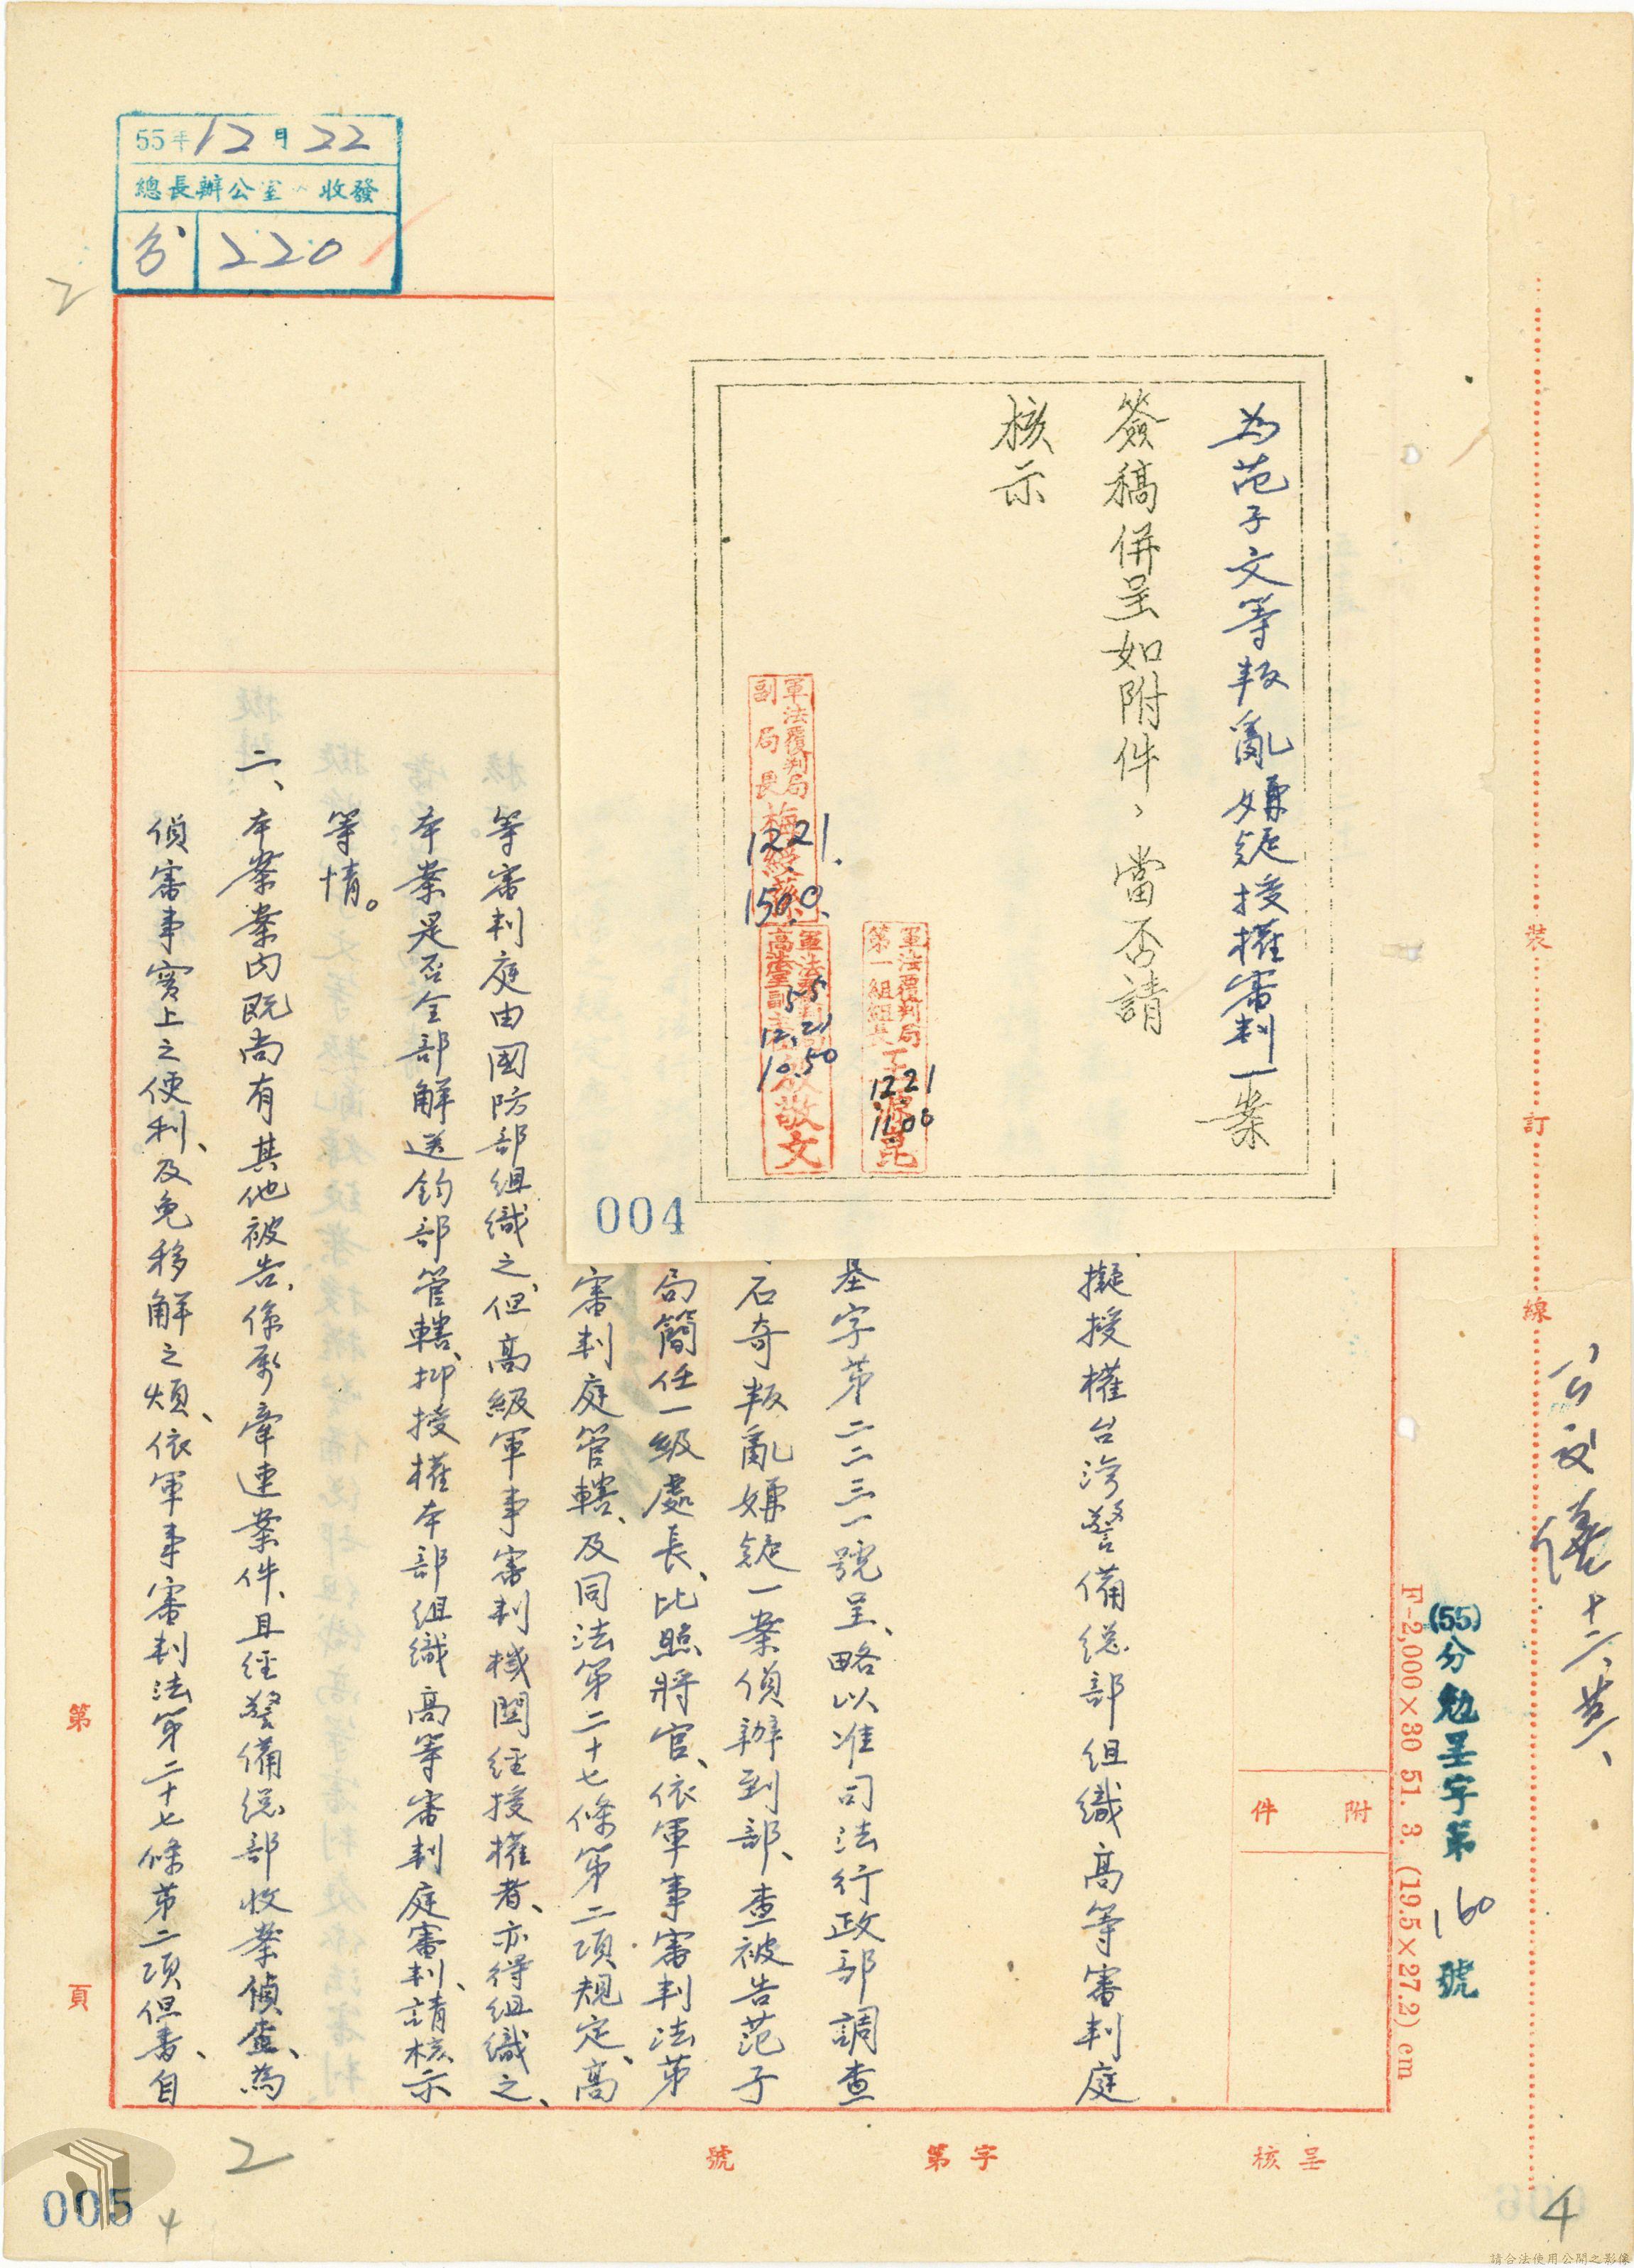 55年12月22
總長辦公室 收發
220
為范子文等叛亂嫌疑授權審判一案
簽稿併呈如附件、當否請
核示
軍法覆判局
副局長
1221.
1500.
軍法覆判局
第一組組長
1221
11.00
55
12.21
10.50
敬文
004
裝
訂
線
(55)分勉呈字第160號
F-2,000×30 51. 3. (19.5×27.2) cm
附件
擬授權台灣警備總部組織高等審判庭
基字第二二三一號呈、略以准司法行政部調查
石奇叛亂嫌疑一案偵辦到部、查被告范子
局簡任一級處長、比照將官、依軍事審判法第
審判庭管轄、及同法第二十七條第二項規定、高
等審判庭由國防部組織之、但高級軍事審判機關經授權者、亦得組織之、
本案是否全部解送鈞部管轄、抑授權本部組織高等審判庭審判、請核示
等情。
二、本案案內既尚有其他被告、係屬牽連案件、且經警備總部收案偵查、為
偵審事實上之便利、及免移解之煩、依軍事審判法第二十七條第二項但書、自
第
頁
呈核
字第
號
2
2
005
4
4
請合法使用公開之影像